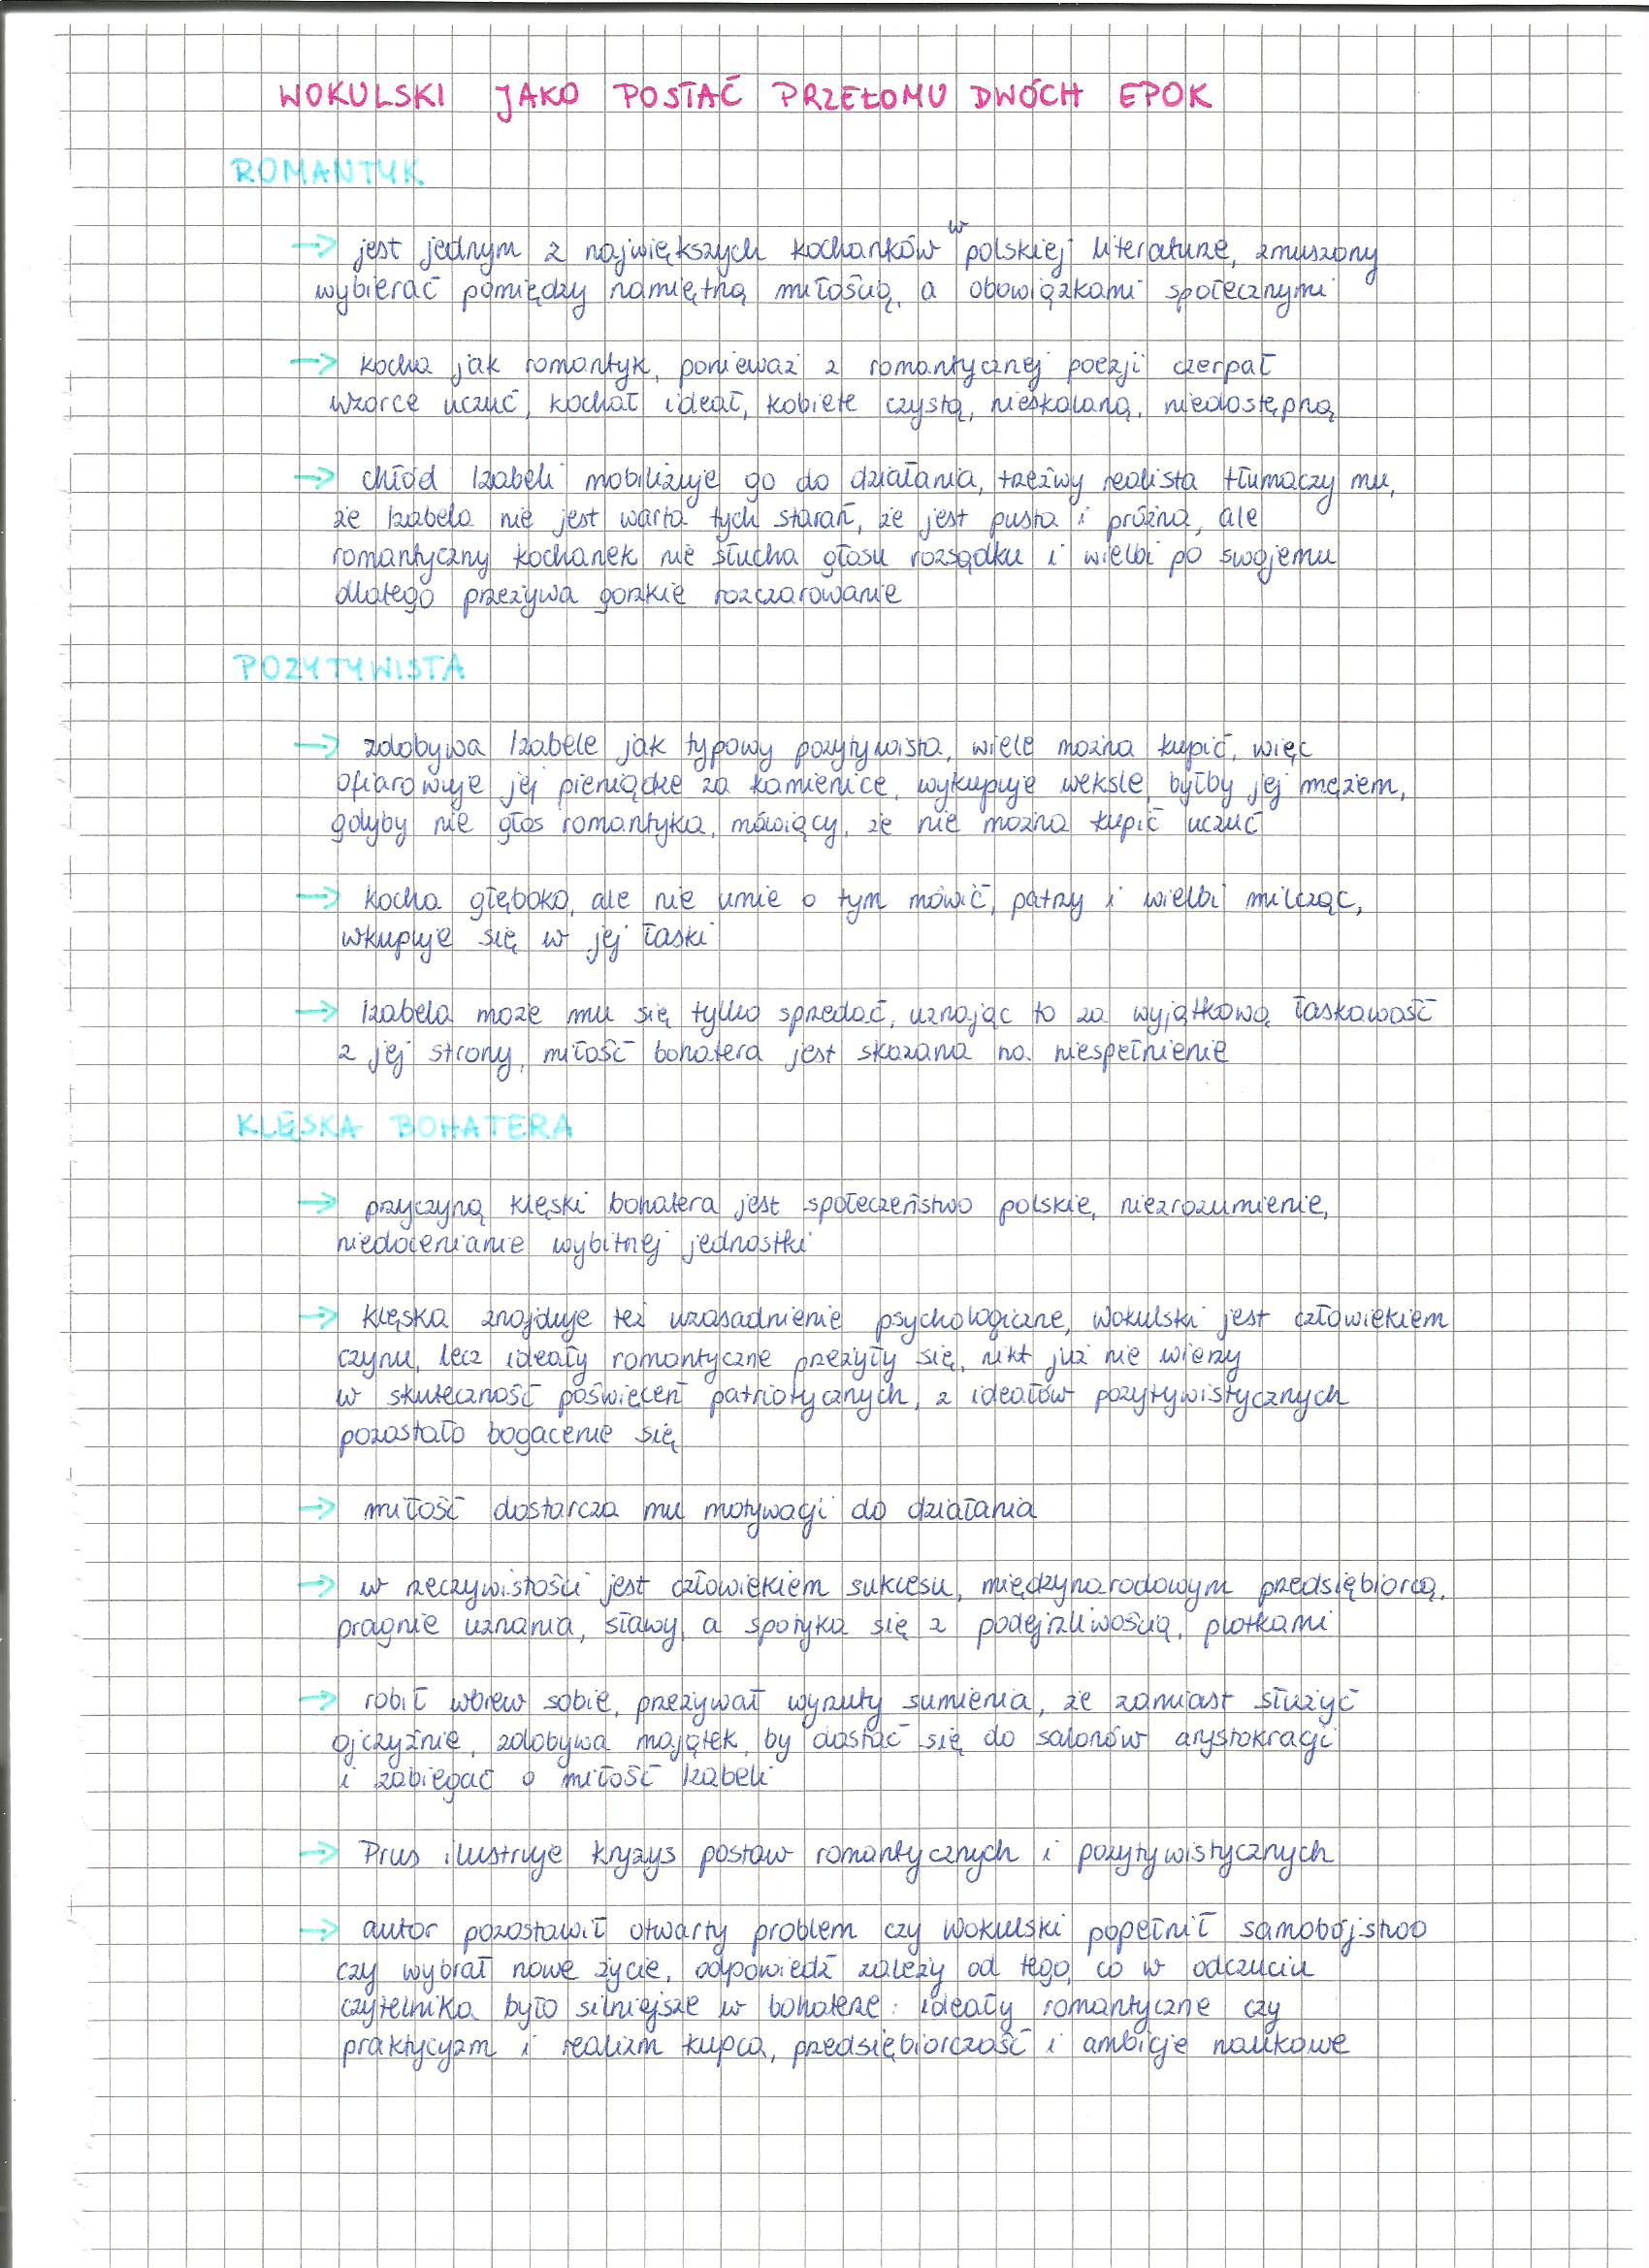 WOKULSKI JAKO POSTAĆ PRZEŁOMU DWÓCH EPOK
ROMANTYK
→ jest jednym z największych kochanków w polskiej literaturze, zmuszony
wybierać pomiędzy namiętną miłością, a obowiązkami społecznymi
→ kocha jak romantyk, ponieważ z romantycznej poezji czerpał
wzorce uczuć, kochał ideał, kobietę czystą, nieskalaną, niedostępną
→ chłód Izabeli mobilizuje go do działania, trzeźwy realista tłumaczy mu,
że Izabela nie jest warta tych starań, że jest pusta i próżna, ale
romantyczny kochanek nie słucha głosu rozsądku i wielbi po swojemu
dlatego przeżywa gorzkie rozczarowanie
POZYTYWISTA
→ zdobywa Izabele jak typowy pozytywista, wiele można kupić, więc
ofiarowuje jej pieniądze za kamienice, wykupuje weksle, byłby jej mężem,
gdyby nie głos romantyka, mówiący, że nie można kupić uczuć
→ kocha głęboko, ale nie umie o tym mówić, patrzy i wielbi milcząc,
wkupuje się w jej łaski
→ Izabela może mu się tylko sprzedać, uznając to za wyjątkową łaskawość
z jej strony, miłość bohatera jest skazana na niespełnienie
KLĘSKA BOHATERA
→ przyczyną klęski bohatera jest społeczeństwo polskie, niezrozumienie,
niedocenianie wybitnej jednostki
→ klęska znajduje też uzasadnienie psychologiczne, Wokulski jest człowiekiem
czynu, lecz ideały romantyczne przeżyły się, nikt już nie wierzy
w skuteczność poświęceń patriotycznych, z ideałów pozytywistycznych
pozostało bogacenie się
→ miłość dostarcza mu motywacji do działania
→ w rzeczywistości jest człowiekiem sukcesu, międzynarodowym przedsiębiorcą,
pragnie uznania, sławy, a spotyka się z podejrzliwością, plotkami
→ robił wbrew sobie, przeżywał wyrzuty sumienia, że zamiast służyć
ojczyźnie, zdobywa majątek, by dostać się do salonów arystokracji
i zabiegać o miłość Izabeli
→ Prus ilustruje kryzys postaw romantycznych i pozytywistycznych
→ autor pozostawił otwarty problem czy Wokulski popełnił samobójstwo
czy wybrał nowe życie, odpowiedź zależy od tego, co w odczuciu
czytelnika było silniejsze w bohaterze: ideały romantyczne czy
praktycyzm i realizm kupca, przedsiębiorczość i ambicje naukowe